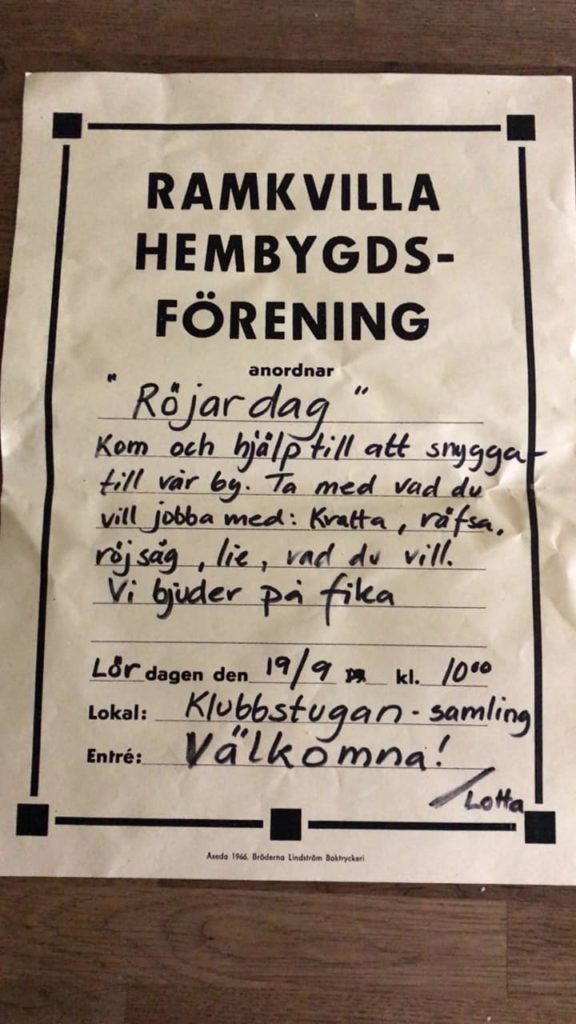 RAMKVILLA
HEMBYGDS-
FÖRENING
anordnar
"Röjardag"
Kom och hjälp till att snygga-
till vår by. Ta med vad du
vill jobba med: Kratta, räfsa,
röjsåg, lie, vad du vill.
Vi bjuder på fika
Lördagen den 19/9 kl. 10⁰⁰
Lokal: Klubbstugan - samling
Entré: Välkomna!
/Lotta
Åseda 1966. Bröderna Lindström Boktryckeri